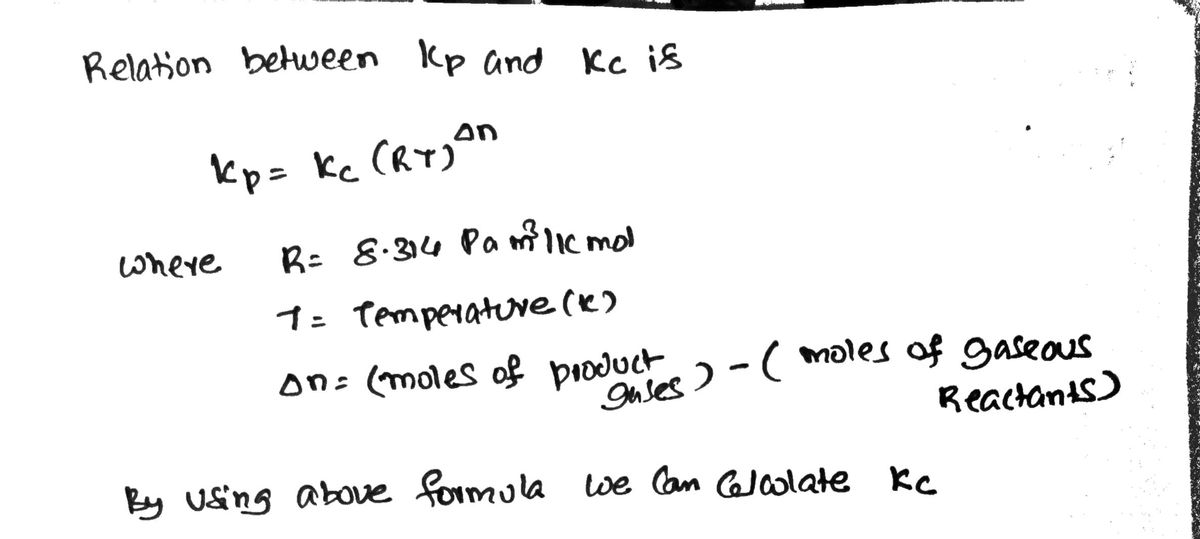 Relation between Kp and Kc is
Kp = Kc (RT)^Δn
where R = 8.314 Pa m³/K mol
T = Temperature (K)
Δn = (moles of product gases) - (moles of gaseous Reactants)
By using above formula we Can Calculate Kc